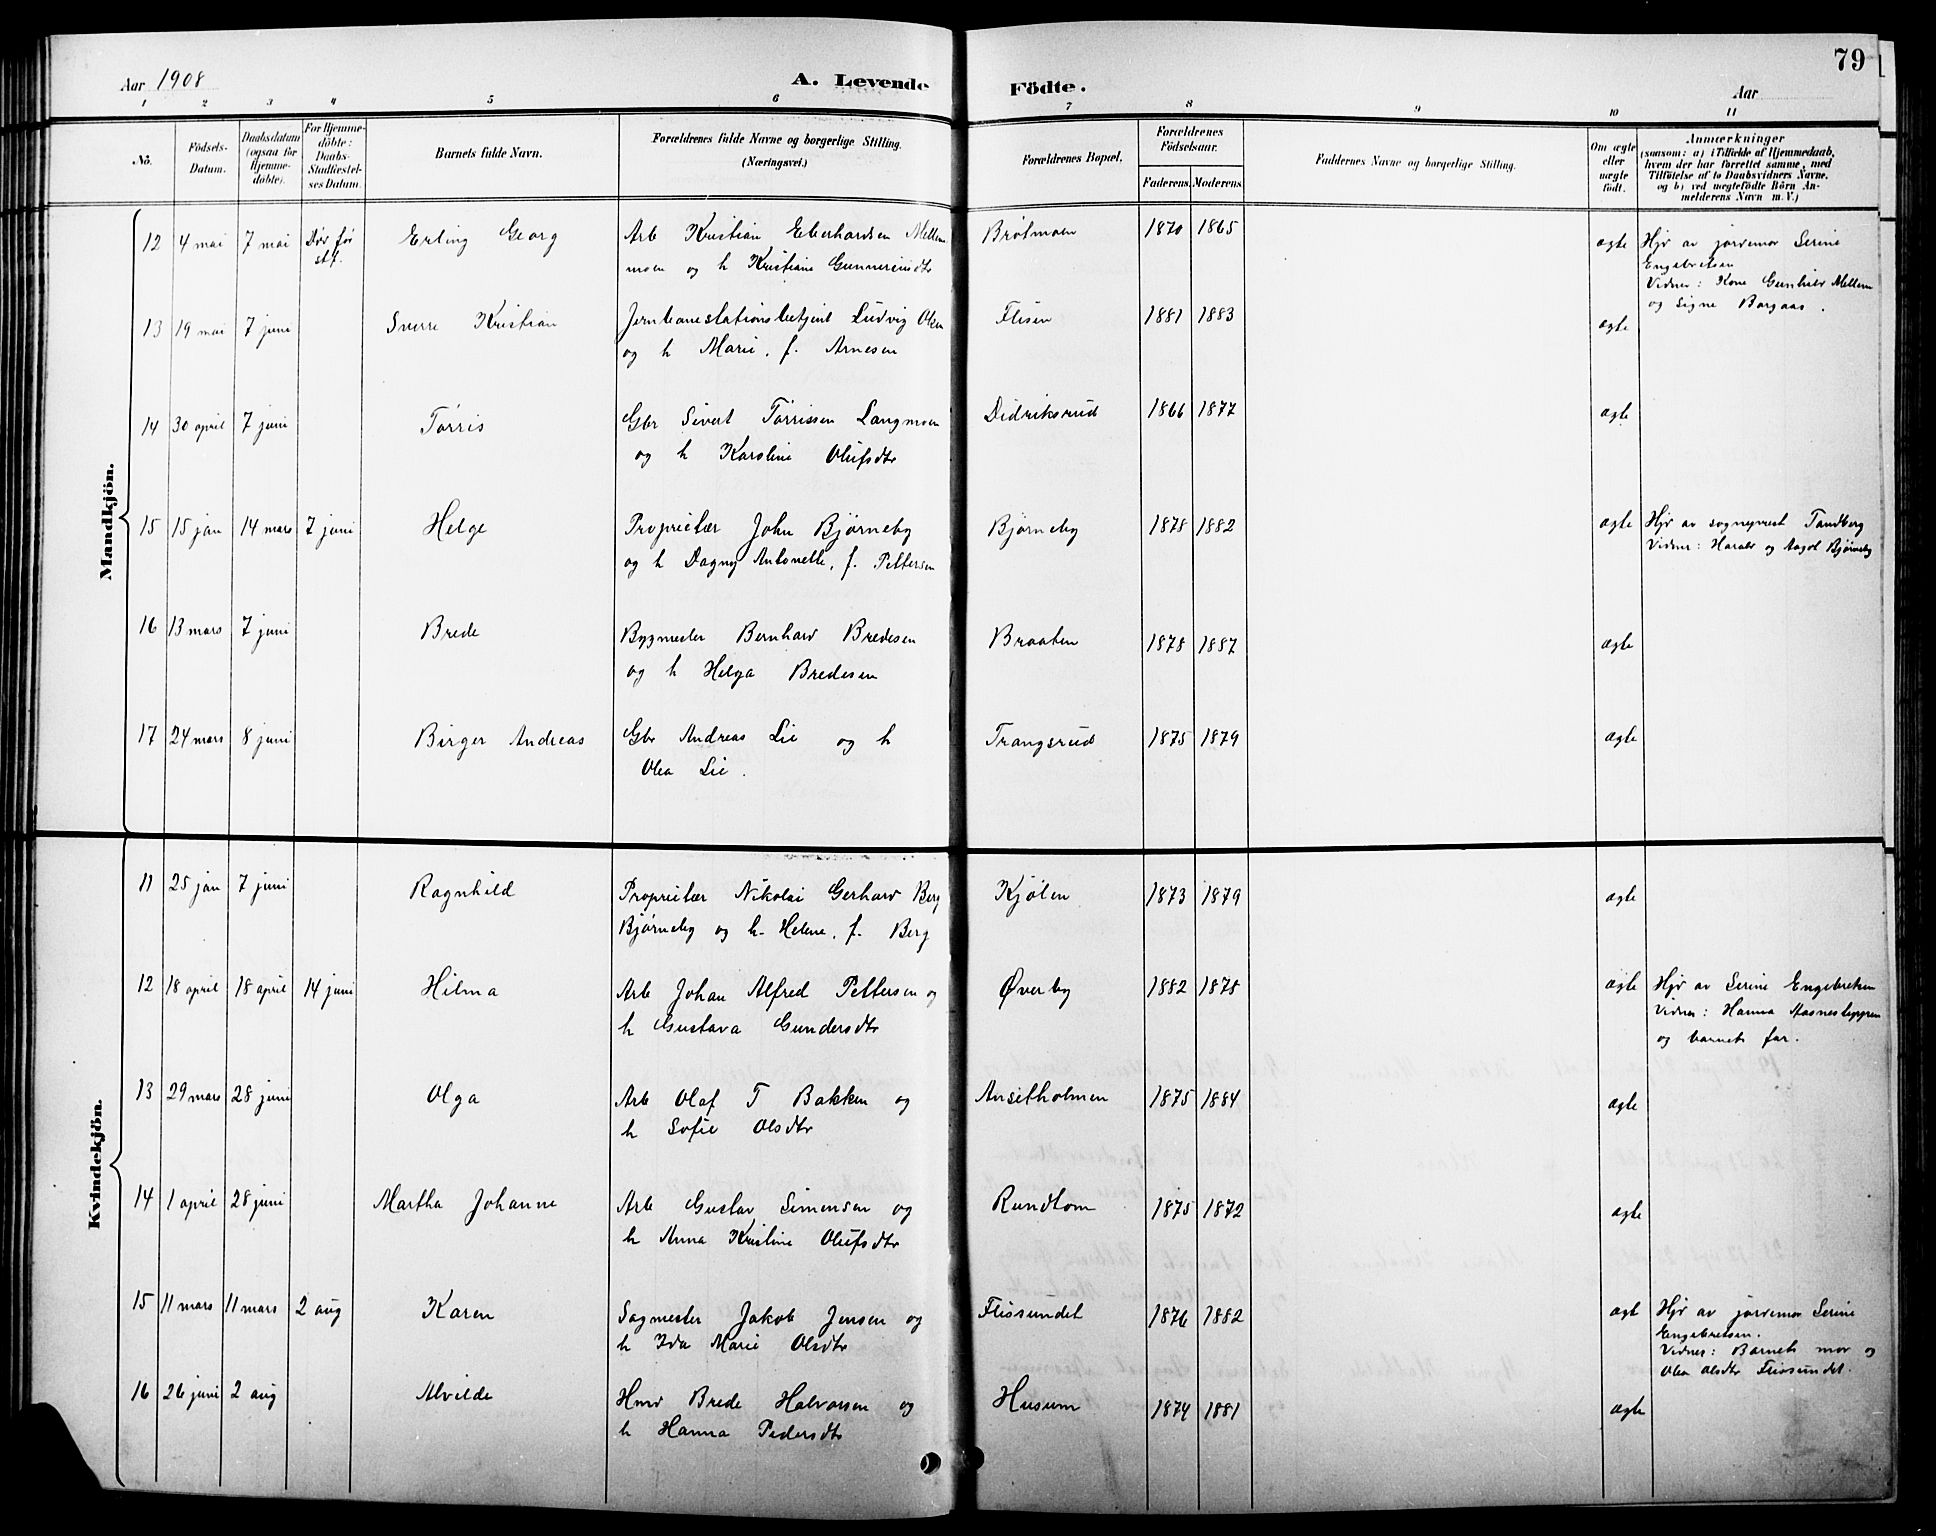 79
Aar 1908 A. Levende Födte. Aar
1 2 3 4 5 6 7 8 9 10 11
No. Födsels-Datum. Daabsdatum (ogsaa for Hjemme-döbte). For Hjemme-döbte: Daabs-Stadfæstel-ses Datum. Barnets fulde Navn. Forældrenes fulde Navne og borgerlige Stilling. (Næringsvei.) Forældrenes Bopæl. Forældrenes Födselsaar. Faderens. Moderens. Faddernes Navne og borgerlige Stilling. Om ægte eller uægte födt. Anmærkninger (saasom: a) i Tilfælde af Hjemmedaab, hvem der har forrettet samme, med Tilföielse af to Daabsvidners Navne, og b) ved uægtefödte Börn An-melderens Navn m. V.)
Mandkjön.
12 4 mai 7 mai Död før stf. Erling Georg Arb Kristian Eberhardsen Mellem Brøtmoen 1870 1865 ægte Hjd av jordemor Serine
moen og h Kristiane Gunnersdtr Engebretsen
Vidner: Kone Gunhild Mellem
og Signe Borgaas.
13 19 mai 7 juni Sverre Kristian Jernbanestationsbetjent Ludvig Olsen Flisen 1881 1883 ægte
og h Marie, f. Arnesen
14 30 april 7 juni Tørris Gbr Sivert Tørrissen Langmoen Didriksrud 1866 1877 ægte
og h Karoline Olufsdtr
15 15 jan 14 mars 7 juni Helge Proprietær John Bjørneby Bjørneby 1878 1882 ægte Hjd av sogneprest Tandberg
og h Dagny Antonette, f. Pettersen Vidner: Harald og Aagot Bjørneby
16 13 mars 7 juni Brede Bygmester Bernhard Bredesen Braaten 1878 1887 ægte
og h Helga Bredesen
17 24 mars 8 juni Birger Andreas Gbr Andreas Lie og h Trangsrud 1875 1879 ægte
Olea Lie.
Kvindekjön.
11 25 jan 7 juni Ragnhild Proprietær Nikolai Gerhard Berg Kjølen 1873 1879 ægte
Bjørneby og h. Helene, f. Berg
12 18 april 18 april 14 juni Hilma Arb Johan Alfred Pettersen og Øverby 1882 1878 ægte Hjd av Serine Engebretsen
h Gustava Gundersdtr Vidner: Hanna Aasnesteppen
og barnets far.
13 29 mars 28 juni Olga Arb Olaf T Bakken og Ansetholmen 1875 1884 ægte
h Sofie Olsdtr
14 1 april 28 juni Martha Johanne Arb Gustav Simensen og Rundtom 1875 1872 ægte
h Anna Kristine Olufsdtr
15 11 mars 11 mars 2 aug Karen Sagmester Jakob Jensen og Flissundet 1876 1882 ægte Hjd av jordemor Serine
h Ida Marie Olsdtr Engebretsen.
Vidner: Barnets mor og
Olea Olsdtr Flissundet.
16 26 juni 2 aug Alvilde Hmd Brede Halvorsen og Husum 1874 1881 ægte
h Hanna Pedersdtr